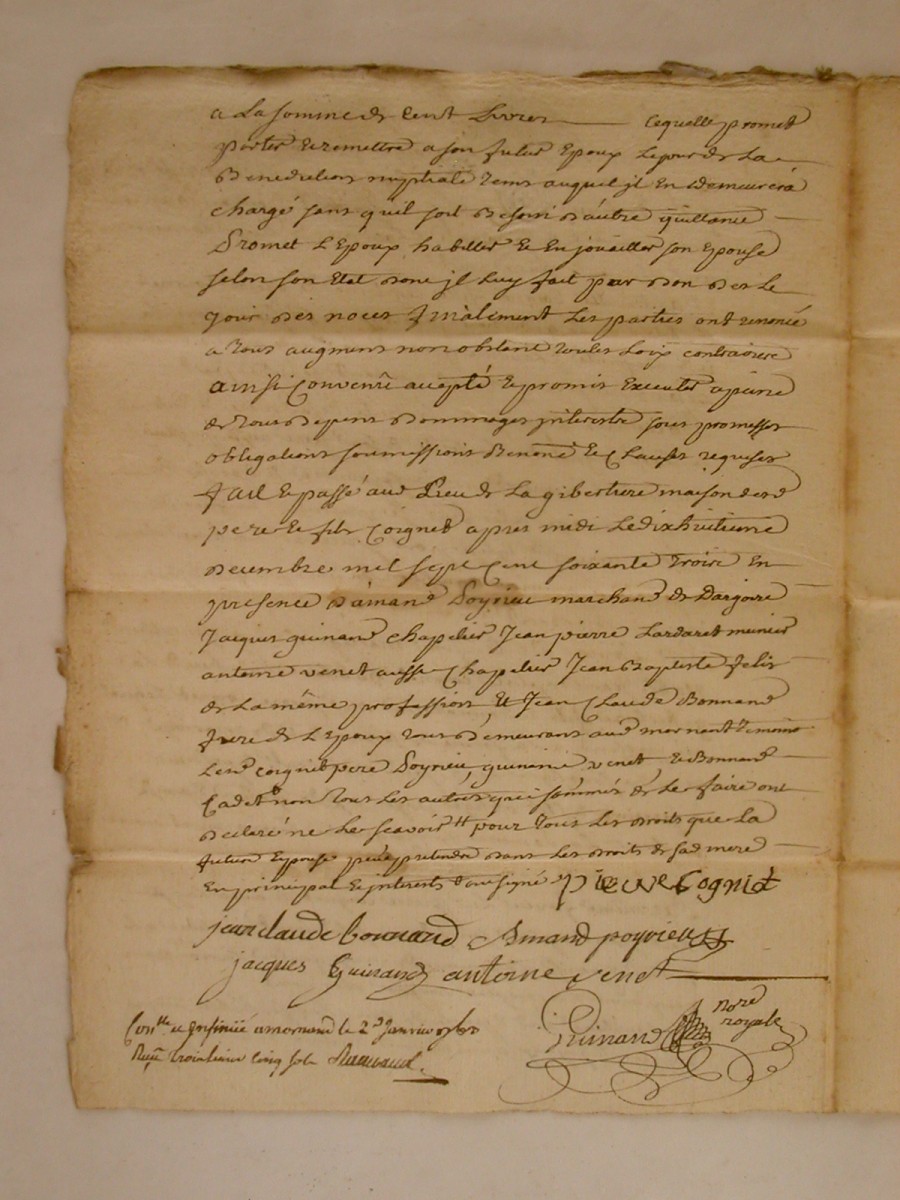 a La somme de Cent Livres ——— Cequelle promet
porter et remettre a son futur Epoux Le jour de La
Benediction nuptiale tems auquel jl En Demeurera
chargé sans quil soit Besoin D'autre quittance
Promet L'Epoux habiller Et En joueiller son Epouse
selon son Etat dont jl Luy fait pur Don Des Le
jour Des noces finalement Les parties ont renoncé
a tous augment nonobstant toutes Loix contraires
ainsi Convenû accepté Et promis Executer a peine
de tous Depens Dommages jnterests sous promesses
obligations soumissions Renonc Et Clauses requises
fait Et passé aud Lieu de La gibertiere maison desd
pere Et fils Coignet apres midi Le dixhuitieme
Decembre mil sept Cent soixante trois En
presence D'amand Poyrieu marchand de Dargoire
Jacques guinand chapelier Jean pierre Lardaret munier
antoine venet aussi Chapelier Jean Baptiste felix
de La même profession Et Jean Claude Bonnand
frere de L'Epoux tous Demeurants aud mornant temoins
Lesd coignet pere Poyrieu, guinand venet Et Bonnand
Cadet non tous Les autres qui sommés de Le faire ont
Declaré ne Le scavoir # pour tous Les droits que La
future Epouse peut pretendre dans Les droits de sad mere
En principal Et interests Ont signé pierre Cognet
jean claude bonnand Amand poyrieux
jacques Guinand antoine venet
Guinand nore royal
Conlle et Insinué a mornand le 2d Janvier 1764
Reçu trois livres cinq sols